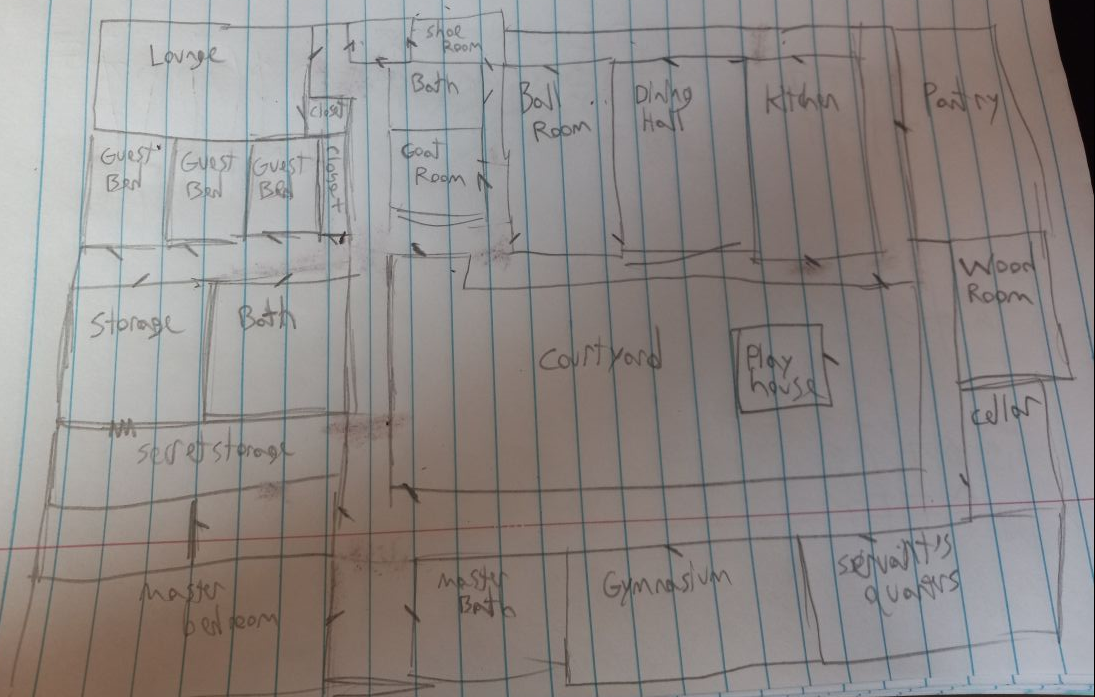 Lounge
Shoe
Room
Closet
Bath
Ball
Room
Dining
Hall
Kitchen
Pantry
Guest
Bed
Guest
Bed
Guest
Bed
Closet
Coat
Room
Storage
Bath
Courtyard
Play
house
Wood
Room
Cellar
secret storage
master
bedroom
master
Bath
Gymnasium
servant's
quarters